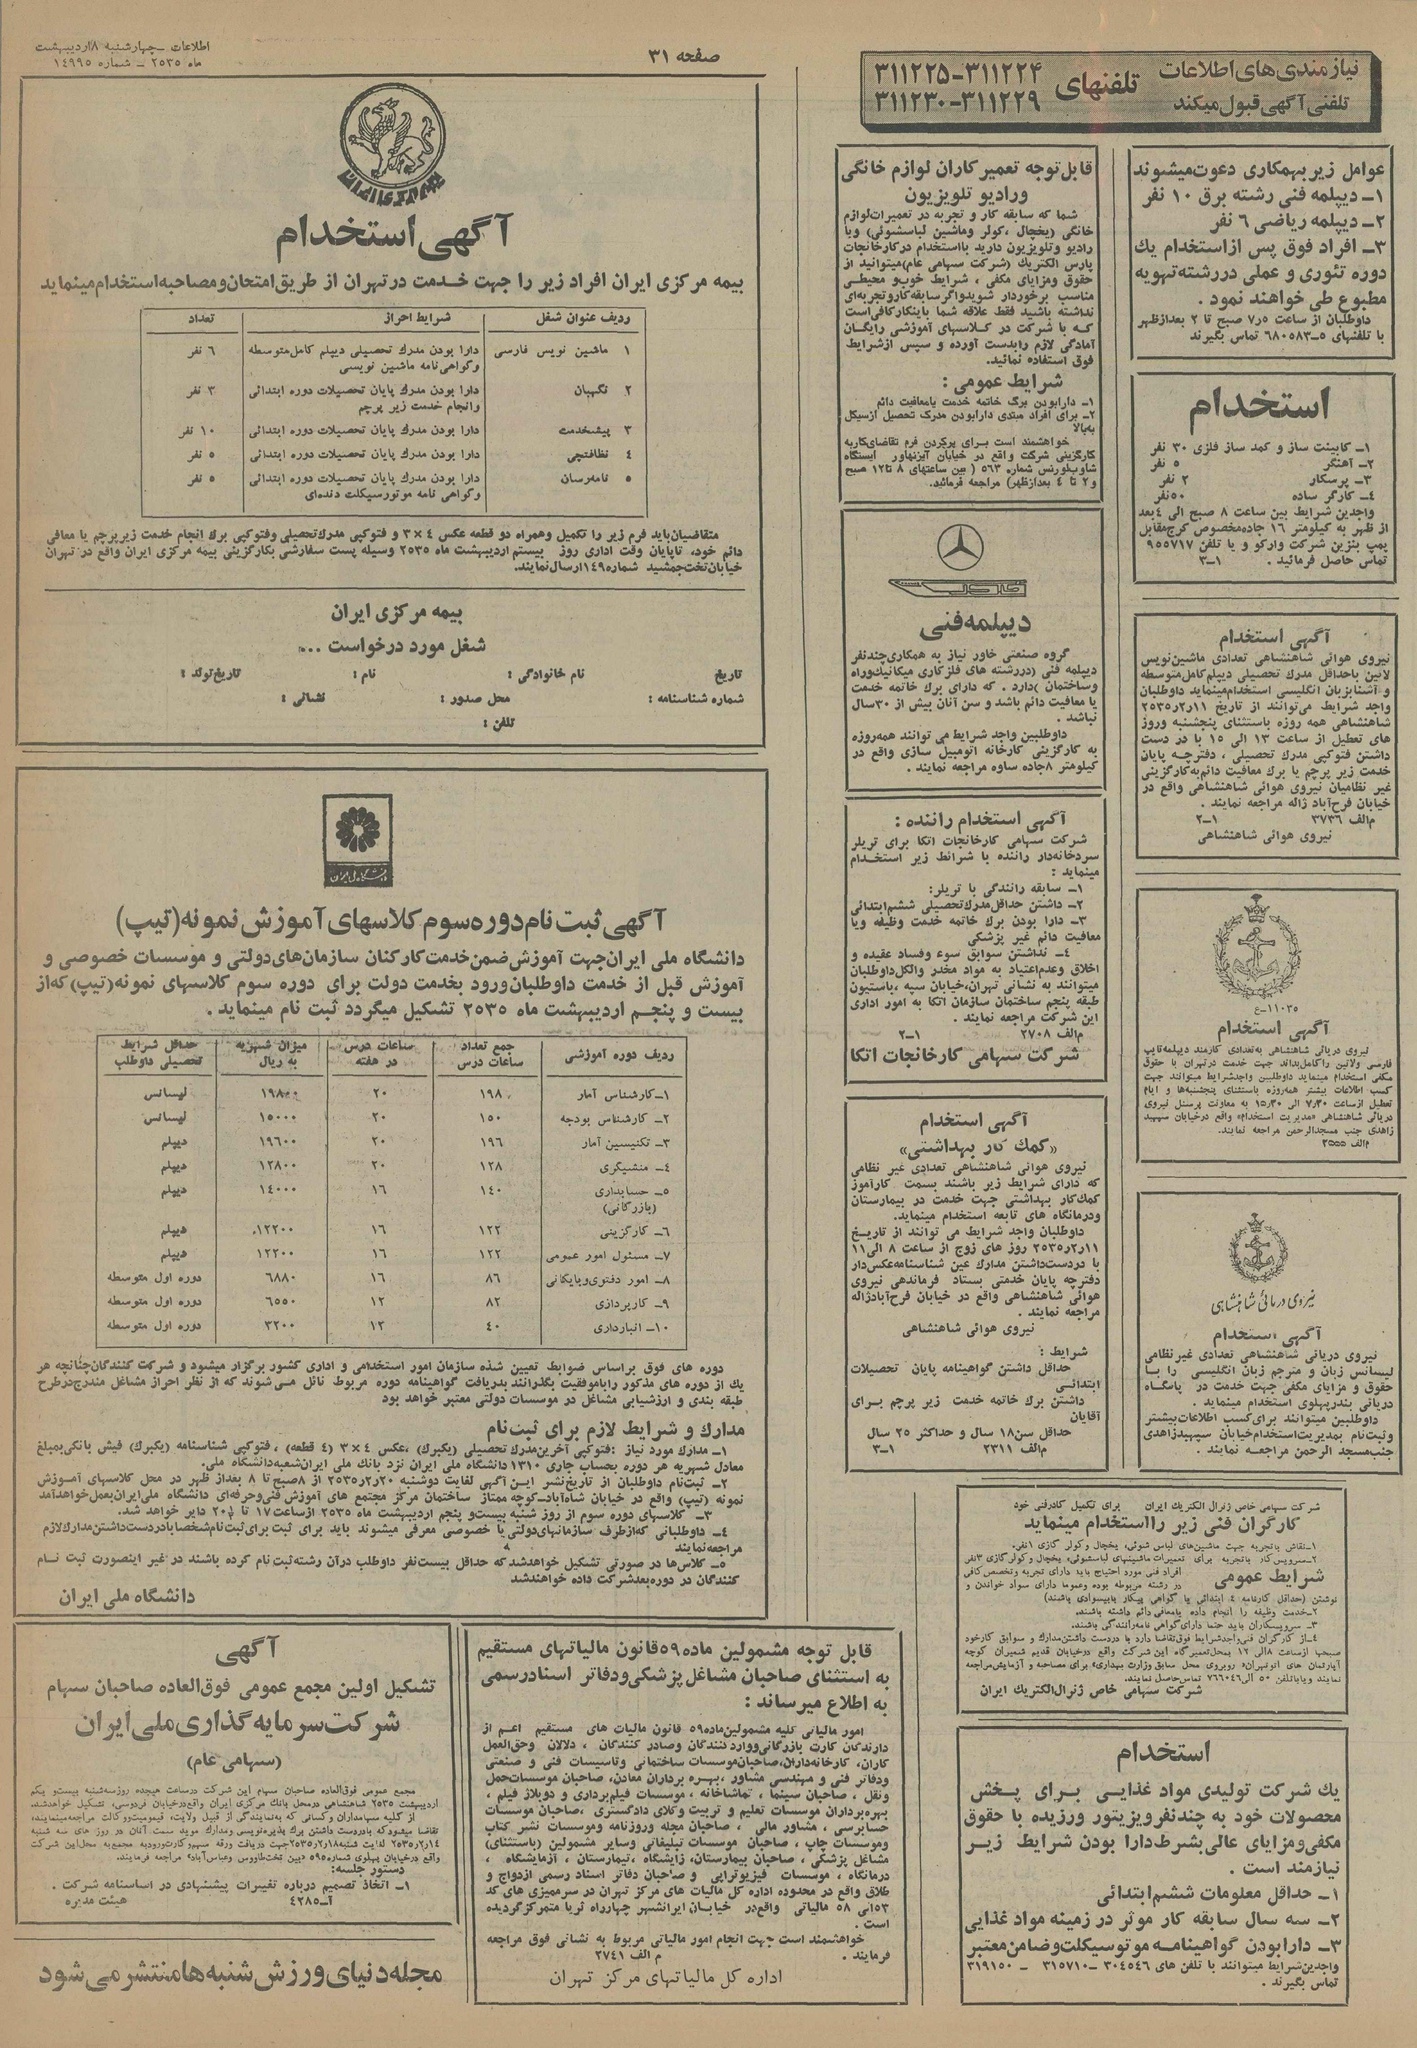 اطلاعات ـ چهارشنبه ۸ اردیبهشت
ماه ۲۵۳۵ ـ شماره ۱۴۹۹۵
صفحه ۳۱
نیازمندی‌های اطلاعات
تلفنی آگهی قبول میکند
تلفنهای
۳۱۱۲۲۴ـ۳۱۱۲۲۵
۳۱۱۲۲۹ـ۳۱۱۲۳۰
عوامل زیر بهمکاری دعوت میشوند
۱ـ دیپلمه فنی رشته برق ۱۰ نفر
۲ـ دیپلمه ریاضی ۶ نفر
۳ـ افراد فوق پس از استخدام یك
دوره تئوری و عملی در رشته تهویه
مطبوع طی خواهند نمود .
داوطلبان از ساعت ۷ر۵ صبح تا ۲ بعدازظهر
با تلفنهای ۵ـ۶۸۰۵۸۳ تماس بگیرند
استخدام
۱ـ کابینت ساز و کمد ساز فلزی ۳۰ نفر
۲ـ آهنگر ۵ نفر
۳ـ پرسکار ۲ نفر
۴ـ کارگر ساده ۵۰نفر
واجدین شرایط بین ساعت ۸ صبح الی ۴ بعد
از ظهر به کیلومتر ۱۶ جاده مخصوص کرج مقابل
پمپ بنزین شرکت وارکو و یا تلفن ۹۵۵۷۱۷
تماس حاصل فرمائید . ۱ـ۳
آگهی استخدام
نیروی هوائی شاهنشاهی تعدادی ماشین‌نویس
لاتین باحداقل مدرك تحصیلی دیپلم کامل متوسطه
و آشنا بزبان انگلیسی استخدام مینماید داوطلبان
واجد شرایط می‌توانند از تاریخ ۲۵۳۵ر۲ر۱۱
شاهنشاهی همه روزه باستثنای پنجشنبه وروز
های تعطیل از ساعت ۱۳ الی ۱۵ با در دست
داشتن فتوکپی مدرك تحصیلی ، دفترچه پایان
خدمت زیر پرچم یا برك معافیت دائم به کارگزینی
غیر نظامیان نیروی هوائی شاهنشاهی واقع در
خیابان فرح‌آباد ژاله مراجعه نمایند .
م‌الف ۳۷۳۶ ۱ـ۲
نیروی هوائی شاهنشاهی
۱۱۰۳۵ـ ع
آگهی استخدام
نیروی دریائی شاهنشاهی به‌تعدادی کارمند دیپلمه تایپ
فارسی ولاتین را کامل بداند جهت خدمت در تهران با حقوق
مکفی استخدام مینماید داوطلبین واجد شرایط میتوانند جهت
کسب اطلاعات بیشتر همه‌روزه باستثنای پنجشنبه‌ها و ایام
تعطیل از ساعت ۷/۳۰ الی ۱۵/۳۰ به معاونت پرسنل نیروی
دریائی شاهنشاهی «مدیریت استخدام» واقع در خیابان سپهبد
زاهدی جنب مسجدالرحمن مراجعه نمایند.
م‌الف
نیروی دریائی شاهنشاهی
آگهی استخدام
نیروی دریائی شاهنشاهی تعدادی غیر نظامی
لیسانس زبان و مترجم زبان انگلیسی را با
حقوق و مزایای مکفی جهت خدمت در پایگاه
دریائی بندر پهلوی استخدام مینماید .
داوطلبین میتوانند برای کسب اطلاعات بیشتر
و ثبت‌نام بمدیریت استخدام خیابان سپهبد زاهدی
جنب مسجد الرحمن مراجعه نمایند .
شرکت سهامی خاص ژنرال الکتریك ایران برای تکمیل کادرفنی خود
کارگران فنی زیر را استخدام مینماید
۱ـ نقاش باتجربه جهت ماشین‌های لباس شوئی، یخچال و کولر گازی ۱نفر.
۲ـ سرویس‌کار باتجربه برای تعمیرات ماشینهای لباسشوئی، یخچال و کولر گازی ۳نفر
شرایط عمومی
افراد فنی مورد احتیاج باید دارای تجربه و تخصص کافی
در رشته مربوطه بوده وعموما دارای سواد خواندن و
نوشتن (حداقل کارنامه ۴ ابتدائی یا گواهی پیکار بابیسوادی باشند)
۲ـ خدمت وظیفه را انجام داده یامعافی دائم داشته باشند.
۳ـ سرویسکاران باید حتما دارای گواهی نامه رانندگی باشند.
۴ـ از کارگران فنی واجد شرایط فوق تقاضا دارد با در دست داشتن مدارك و سوابق کار خود
صبحها از ساعت ۸ الی ۱۲ بمحل تعمیرگاه این شرکت واقع در خیابان قدیم شمیران کوچه
آپارتمان های اتوتهران روبروی محل سابق وزارت بهداری برای مصاحبه و آزمایش مراجعه
نمایند ویا باتلفن ۵۰ الی ۷۶۶۰۴۶ تماس حاصل نمایند.
شرکت سهامی خاص ژنرال الکتریك ایران
استخدام
یك شرکت تولیدی مواد غذایی برای پخش
محصولات خود به چندنفر ویزیتور ورزیده با حقوق
مکفی و مزایای عالی بشرط دارا بودن شرایط زیر
نیازمند است .
۱ـ حداقل معلومات ششم ابتدائی
۲ـ سه سال سابقه کار موثر در زمینه مواد غذایی
۳ـ دارابودن گواهینامه موتوسیکلت وضامن معتبر
واجدین شرایط میتوانند با تلفن های ۳۰۴۵۴۶ ـ ۳۱۵۷۱۰ ـ ۳۱۹۱۵۰
تماس بگیرند .
قابل توجه تعمیر کاران لوازم خانگی
ورادیو تلویزیون
شما که سابقه کار و تجربه در تعمیرات لوازم
خانگی (یخچال ،کولر وماشین لباسشوئی) ویا
رادیو وتلویزیون دارید بااستخدام در کارخانجات
پارس الکتریك (شرکت سهامی عام)میتوانید از
حقوق ومزایای مکفی ، شرایط خوب و محیطی
مناسب برخوردار شوید واگر سابقه کار وتجربه‌ای
نداشته باشید فقط علاقه شما باینکار کافی‌است
که با شرکت در کلاسهای آموزشی رایگان
آمادگی لازم رابدست آورده و سپس از شرایط
فوق استفاده نمائید.
شرایط عمومی :
۱ـ دارابودن برگ خاتمه خدمت یامعافیت دائم
۲ـ برای افراد مبتدی دارابودن مدرك تحصیل از سیکل
به‌بالا
خواهشمند است برای پرکردن فرم تقاضای کار به
کارگزینی شرکت واقع در خیابان آیزنهاور ایستگاه
شادب‌لورنس شماره ۵۶۳ ( بین ساعتهای ۸ تا ۱۲ صبح
و ۲ تا ۴ بعدازظهر) مراجعه فرمائید.
خاور
دیپلمه فنی
گروه صنعتی خاور نیاز به همکاری چندنفر
دیپلمه فنی (در رشته های فلزکاری میکانیك وراه
وساختمان ) دارد . که دارای برك خاتمه خدمت
یا معافیت دائم باشد و سن آنان بیش از ۳۰سال
نباشد .
داوطلبین واجد شرایط می توانند همه‌روزه
به کارگزینی کارخانه اتومبیل سازی واقع در
کیلومتر ۸ جاده ساوه مراجعه نمایند .
آگهی استخدام راننده :
شرکت سهامی کارخانجات اتکا برای تریلر
سردخانه‌دار راننده با شرائط زیر استخدام
مینماید :
۱ـ سابقه رانندگی با تریلر:
۲ـ داشتن حداقل مدرك تحصیلی ششم ابتدائی
۳ـ دارا بودن برك خاتمه خدمت وظیفه ویا
معافیت دائم غیر پزشکی
۴ـ نداشتن سوابق سوء وفساد عقیده و
اخلاق وعدم اعتیاد به مواد مخدر والکل داوطلبان
میتوانند به نشانی تهران،خیابان سپه ،باستیون
طبقه پنجم ساختمان سازمان اتکا به امور اداری
این شرکت مراجعه نمایند .
م‌الف ۲۷۰۸ ۱ـ۲
شرکت سهامی کارخانجات اتکا
آگهی استخدام
«کمك کار بهداشتی»
نیروی هوائی شاهنشاهی تعدادی غیر نظامی
که دارای شرایط زیر باشند بسمت کارآموز
کمك‌کار بهداشتی جهت خدمت در بیمارستان
ودرمانگاه های تابعه استخدام مینماید.
داوطلبان واجد شرایط می توانند از تاریخ
۲۵۳۵ر۲ر۱۱ روز های زوج از ساعت ۸ الی ۱۱
با دردست‌داشتن مدارك عین شناسنامه عکس دار
دفترچه پایان خدمتی بستاد فرماندهی نیروی
هوائی شاهنشاهی واقع در خیابان فرح‌آباد ژاله
مراجعه نمایند .
نیروی هوائی شاهنشاهی
شرایط :
حداقل داشتن گواهینامه پایان تحصیلات
ابتدائی
داشتن برك خاتمه خدمت زیر پرچم برای
آقایان
حداقل سن ۱۸ سال و حداکثر ۲۵ سال
م‌الف ۲۳۱۱ ۱ـ۳
بیمه مرکزی ایران
آگهی استخدام
بیمه مرکزی ایران افراد زیر را جهت خدمت در تهران از طریق امتحان و مصاحبه استخدام مینماید
ردیف عنوان شغل شرایط احراز تعداد
۱ ماشین نویس فارسی دارا بودن مدرك تحصیلی دیپلم کامل متوسطه ۶ نفر
وگواهی نامه ماشین نویسی
۲ نگهبان دارا بودن مدرك پایان تحصیلات دوره ابتدائی ۳ نفر
وانجام خدمت زیر پرچم
۳ پیشخدمت دارا بودن مدرك پایان تحصیلات دوره ابتدائی ۱۰ نفر
۴ نظافتچی دارا بودن مدرك پایان تحصیلات دوره ابتدائی ۵ نفر
۵ نامه‌رسان دارا بودن مدرك پایان تحصیلات دوره ابتدائی ۵ نفر
وگواهی نامه موتورسیکلت دنده‌ای
متقاضیان باید فرم زیر را تکمیل وهمراه دو قطعه عکس ۴×۳ و فتوکپی مدرك تحصیلی وفتوکپی برك انجام خدمت زیر پرچم یا معافی
دائم خود، تاپایان وقت اداری روز بیستم اردیبهشت ماه ۲۵۳۵ وسیله پست سفارشی بکارگزینی بیمه مرکزی ایران واقع در تهران
خیابان تخت جمشید شماره ۱۴۹ ارسال نمایند.
بیمه مرکزی ایران
شغل مورد درخواست ...
تاریخ نام خانوادگی : نام : تاریخ تولد :
شماره شناسنامه : محل صدور : نشانی :
تلفن :
دانشگاه ملی ایران
آگهی ثبت نام دوره سوم کلاسهای آموزش نمونه (تیپ)
دانشگاه ملی ایران جهت آموزش ضمن خدمت کارکنان سازمان‌های دولتی و موسسات خصوصی و
آموزش قبل از خدمت داوطلبان ورود بخدمت دولت برای دوره سوم کلاسهای نمونه(تیپ) که از
بیست و پنجم اردیبهشت ماه ۲۵۳۵ تشکیل میگردد ثبت نام مینماید .
ردیف دوره آموزشی جمع تعداد ساعات درس ساعات درس در هفته میزان شهریه به ریال حداقل شرایط تحصیلی داوطلب
۱ـ کارشناس آمار ۱۹۸ ۲۰ ۱۹۸۰۰ لیسانس
۲ـ کارشناس بودجه ۱۵۰ ۲۰ ۱۵۰۰۰ لیسانس
۳ـ تکنیسین آمار ۱۹۶ ۲۰ ۱۹۶۰۰ دیپلم
۴ـ منشیگری ۱۲۸ ۲۰ ۱۲۸۰۰ دیپلم
۵ـ حسابداری (بازرگانی) ۱۴۰ ۱۶ ۱۴۰۰۰ دیپلم
۶ـ کارگزینی ۱۲۲ ۱۶ ۱۲۲۰۰ دیپلم
۷ـ مسئول امور عمومی ۱۲۲ ۱۶ ۱۲۲۰۰ دیپلم
۸ـ امور دفتری وبایگانی ۸۶ ۱۶ ۶۸۸۰ دوره اول متوسطه
۹ـ کارپردازی ۸۲ ۱۲ ۶۵۵۰ دوره اول متوسطه
۱۰ـ انبارداری ۴۰ ۱۲ ۳۲۰۰ دوره اول متوسطه
دوره های فوق براساس ضوابط تعیین شده سازمان امور استخدامی و اداری کشور برگزار میشود و شرکت کنندگان چنانچه هر
یك از دوره های مذکور راباموفقیت بگذرانند بدریافت گواهینامه دوره مربوط نائل می‌شوند که از نظر احراز مشاغل مندرج در طرح
طبقه بندی و ارزشیابی مشاغل در موسسات دولتی معتبر خواهد بود
مدارك و شرایط لازم برای ثبت نام
۱ـ مدارك مورد نیاز :فتوکپی آخرین مدرك تحصیلی (یکبرك) ،عکس ۴×۳ (۴ قطعه) ، فتوکپی شناسنامه (یکبرك) فیش بانکی بمبلغ
معادل شهریه هر دوره بحساب جاری ۱۳۱۰ دانشگاه ملی ایران نزد بانك ملی ایران شعبه دانشگاه ملی.
۲ـ ثبت‌نام داوطلبان از تاریخ نشر این آگهی لغایت دوشنبه ۲۵۳۵ر۲ر۲۰ از ۸ صبح تا ۸ بعداز ظهر در محل کلاسهای آموزش
نمونه (تیپ) واقع در خیابان شاه‌آبادـ کوچه ممتاز ساختمان مرکز مجتمع های آموزش فنی وحرفه‌ای دانشگاه ملی ایران بعمل خواهد آمد
۳ـ کلاسهای دوره سوم از روز شنبه بیست و پنجم اردیبهشت ماه ۲۵۳۵ از ساعت ۱۷ تا دایر خواهد شد.
۴ـ داوطلبانی که از طرف سازمانهای دولتی یا خصوصی معرفی میشوند باید برای ثبت نام شخصا با دردست داشتن مدارك لازم
مراجعه نمایند
۵ـ کلاس‌ها در صورتی تشکیل خواهد شد که حداقل بیست نفر داوطلب در آن رشته ثبت نام کرده باشند در غیر اینصورت ثبت نام
کنندگان در دوره بعد شرکت داده خواهند شد
دانشگاه ملی ایران
قابل توجه مشمولین ماده ۵۹ قانون مالیاتهای مستقیم
به استثنای صاحبان مشاغل پزشکی ودفاتر اسناد رسمی
به اطلاع میرساند :
امور مالیاتی کلیه مشمولین ماده ۵۹ قانون مالیات های مستقیم اعم از
دارندگان کارت بازرگانی و وارد کنندگان وصادر کنندگان ، دلالان وحق‌العمل
کاران، کارخانه‌داران،صاحبان موسسات ساختمانی وتاسیسات فنی و صنعتی
ودفاتر فنی و مهندسی مشاور ،بهره برداران معادن، صاحبان موسسات حمل
ونقل ، صاحبان سینما ، تماشاخانه ، موسسات فیلمبرداری و دوبلاژ فیلم ،
بهره‌برداران موسسات تعلیم و تربیت وکلای دادگستری ،صاحبان موسسات
حسابرسی ، مشاور مالی ، صاحبان مجله وروزنامه وموسسات نشر کتاب
وموسسات چاپ ، صاحبان موسسات تبلیغاتی وسایر مشمولین (باستثنای)
مشاغل پزشکی ، صاحبان بیمارستان، زایشگاه ،تیمارستان ، آزمایشگاه ،
درمانگاه ، موسسات فیزیوتراپی و صاحبان دفاتر اسناد رسمی ازدواج و
طلاق واقع در محدوده اداره کل مالیات های مرکز تهران در سرممیزی های کد
۵۳ الی ۵۸ مالیاتی واقع در خیابان ایرانشهر چهارراه ثریا متمرکز گردیده
است .
خواهشمند است جهت انجام امور مالیاتی مربوط به نشانی فوق مراجعه
فرمایند . م الف ۲۷۴۱
اداره کل مالیاتهای مرکز تهران
آگهی
تشکیل اولین مجمع عمومی فوق العاده صاحبان سهام
شرکت سرمایه گذاری ملی ایران
(سهامی عام)
مجمع عمومی فوق‌العاده صاحبان سهام این شرکت در ساعت هیجده روز سه‌شنبه بیست و یکم
اردیبهشت ۲۵۳۵ شاهنشاهی در محل بانك مرکزی ایران واقع در خیابان فردوسی، تشکیل خواهد شد.
از کلیه سهامداران و کسانی که به‌نمایندگی از قبیل ولایت، قیمومیت و وکالت مراجعه مینمایند،
تقاضا میشود که بادر دست داشتن برك پذیره‌نویسی و مدارك موید سمت آنان در روز های سه شنبه
۲۵۳۵ر۲ر۱۴ لغایت شنبه ۲۵۳۵ر۲ر۱۸ جهت دریافت ورقه سهم و کارت ورود به مجمع به محل این شرکت
واقع در خیابان پهلوی شماره ۵۹۵ «بین تخت‌طاووس وعباس‌آباد» مراجعه فرمایند.
دستور جلسه:
۱ـ اتخاذ تصمیم درباره تغییرات پیشنهادی در اساسنامه شرکت .
آـ۴۲۸۵ هیئت مدیره
مجله دنیای ورزش شنبه ها منتشر می شود